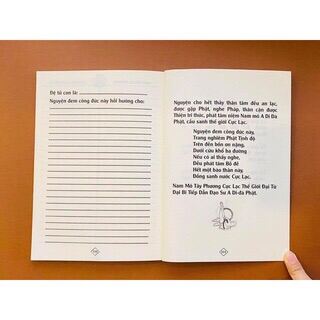 Đệ tử con là:
Nguyện đem công đức này hồi hướng cho:
Nguyện cho hết thảy thân tâm đều an lạc,
được gặp Phật, nghe Pháp, thân cận được
Thiện tri thức, phát tâm niệm Nam mô A Di Đà
Phật, cầu sanh thế giới Cực Lạc.
Nguyện đem công đức này,
Trang nghiêm Phật Tịnh độ
Trên đền bốn ơn nặng,
Dưới cứu khổ ba đường
Nếu có ai thấy nghe,
Đều phát tâm Bồ đề
Hết một báo thân này,
Đồng sanh nước Cực Lạc.
Nam Mô Tây Phương Cực Lạc Thế Giới Đại Từ
Đại Bi Tiếp Dẫn Đạo Sư A Di-đà Phật.